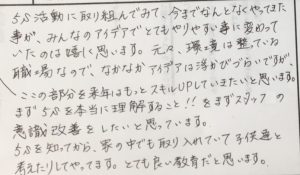 5S活動に取り組んでみて、今までなんとなくやってきた
事が、みんなのアイデアでとてもやりやすい事に変わって
いたのは嬉しく思います。元々、環境は整っている
職場なので、なかなかアイデアは浮かびづらいですが、
ここの部分を来年はもっとスキルUPしていきたいと思います。
まず5Sを本当に理解すること!!をまずスタッフの
意識改善をしたいと思っています。
5Sを知ってから、家の中でも取り入れていて子供達と
考えたりしてやってます。とても良い教育だと思います。